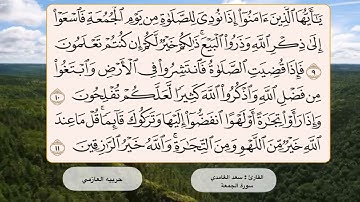 يَٰٓأَيُّهَا ٱلَّذِينَ ءَامَنُوٓا۟ إِذَا نُودِىَ لِلصَّلَوٰةِ مِن يَوْمِ ٱلْجُمُعَةِ فَٱسْعَوْا۟
إِلَىٰ ذِكْرِ ٱللَّهِ وَذَرُوا۟ ٱلْبَيْعَ ۚ ذَٰلِكُمْ خَيْرٌ لَّكُمْ إِن كُنتُمْ تَعْلَمُونَ
٩ فَإِذَا قُضِيَتِ ٱلصَّلَوٰةُ فَٱنتَشِرُوا۟ فِى ٱلْأَرْضِ وَٱبْتَغُوا۟
مِن فَضْلِ ٱللَّهِ وَٱذْكُرُوا۟ ٱللَّهَ كَثِيرًا لَّعَلَّكُمْ تُفْلِحُونَ ١٠
وَإِذَا رَأَوْا۟ تِجَٰرَةً أَوْ لَهْوًا ٱنفَضُّوٓا۟ إِلَيْهَا وَتَرَكُوكَ قَآئِمًا ۚ قُلْ مَا عِندَ
ٱللَّهِ خَيْرٌ مِّنَ ٱللَّهْوِ وَمِنَ ٱلتِّجَٰرَةِ ۚ وَٱللَّهُ خَيْرُ ٱلرَّٰزِقِينَ ١١
القارئ : سعد الغامدي
سورة الجمعة
حربيه العازمي